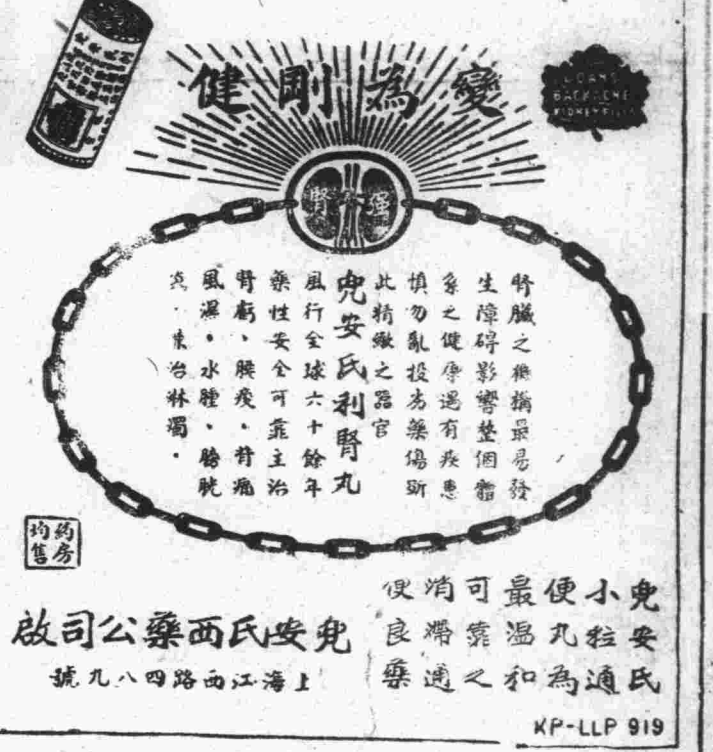 變為剛健
DOAN'S
BACKACHE
KIDNEY PILLS
強腎
腎臟之機構最易發
生障碍影響整個體
系之健康遇有疾患
慎勿亂投劣藥傷斲
此精緻之器官
兜安氏利腎丸
風行全球六十餘年
藥性安全可靠主治
腎虧、腰痠、背痛
風濕、水腫、膀胱
炎、淋濁、
药房
均售
兜安氏
小粒通
便丸為
最溫和
可靠之
消滯通
便良藥
兜安氏西藥公司啟
上海江西路四八九號
KP-LLP 919